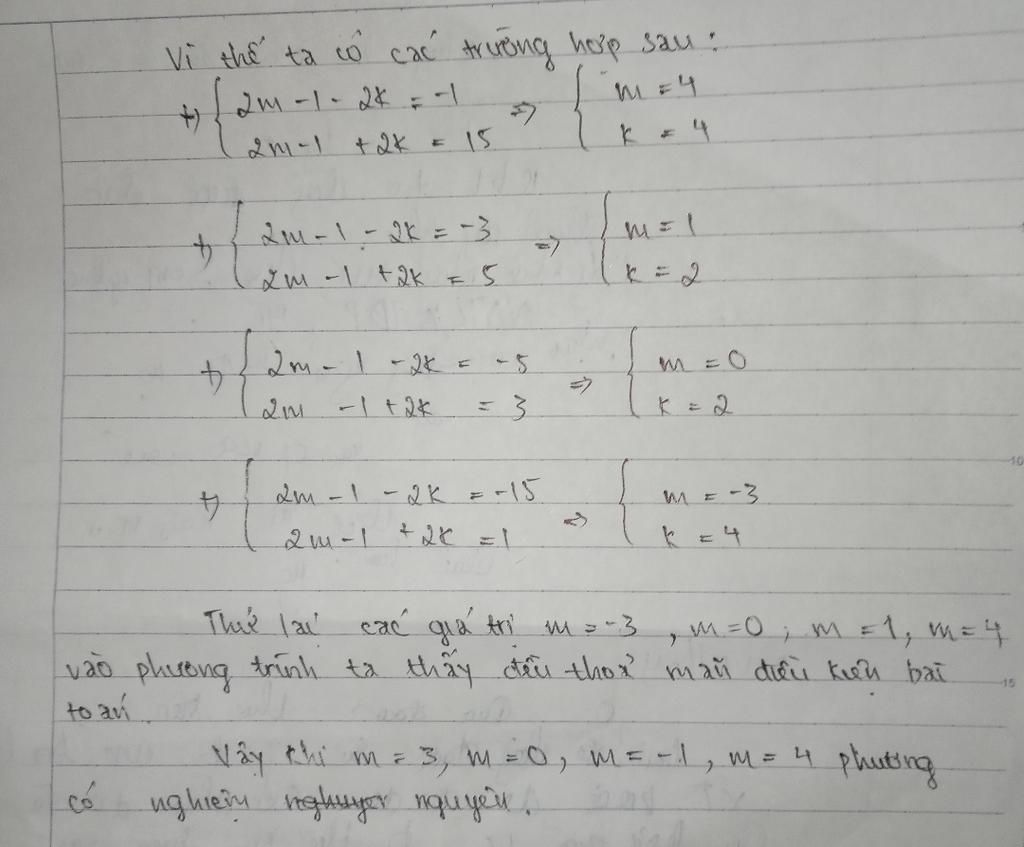 Vì thế ta có các trường hợp sau:
+) { 2m - 1 - 2k = -1 => { m = 4
2m - 1 + 2k = 15 k = 4
+) { 2m - 1 - 2k = -3 => { m = 1
2m - 1 + 2k = 5 k = 2
+) { 2m - 1 - 2k = -5 => { m = 0
2m - 1 + 2k = 3 k = 2
+) { 2m - 1 - 2k = -15 => { m = -3
2m - 1 + 2k = 1 k = 4
10
Thử lại các giá trị m = -3, m = 0; m = 1, m = 4
vào phương trình ta thấy đều thoả mãn điều kiện bài
15
toán.
Vậy khi m = 3, m = 0, m = -1, m = 4 phương
có nghiệm nguyên.